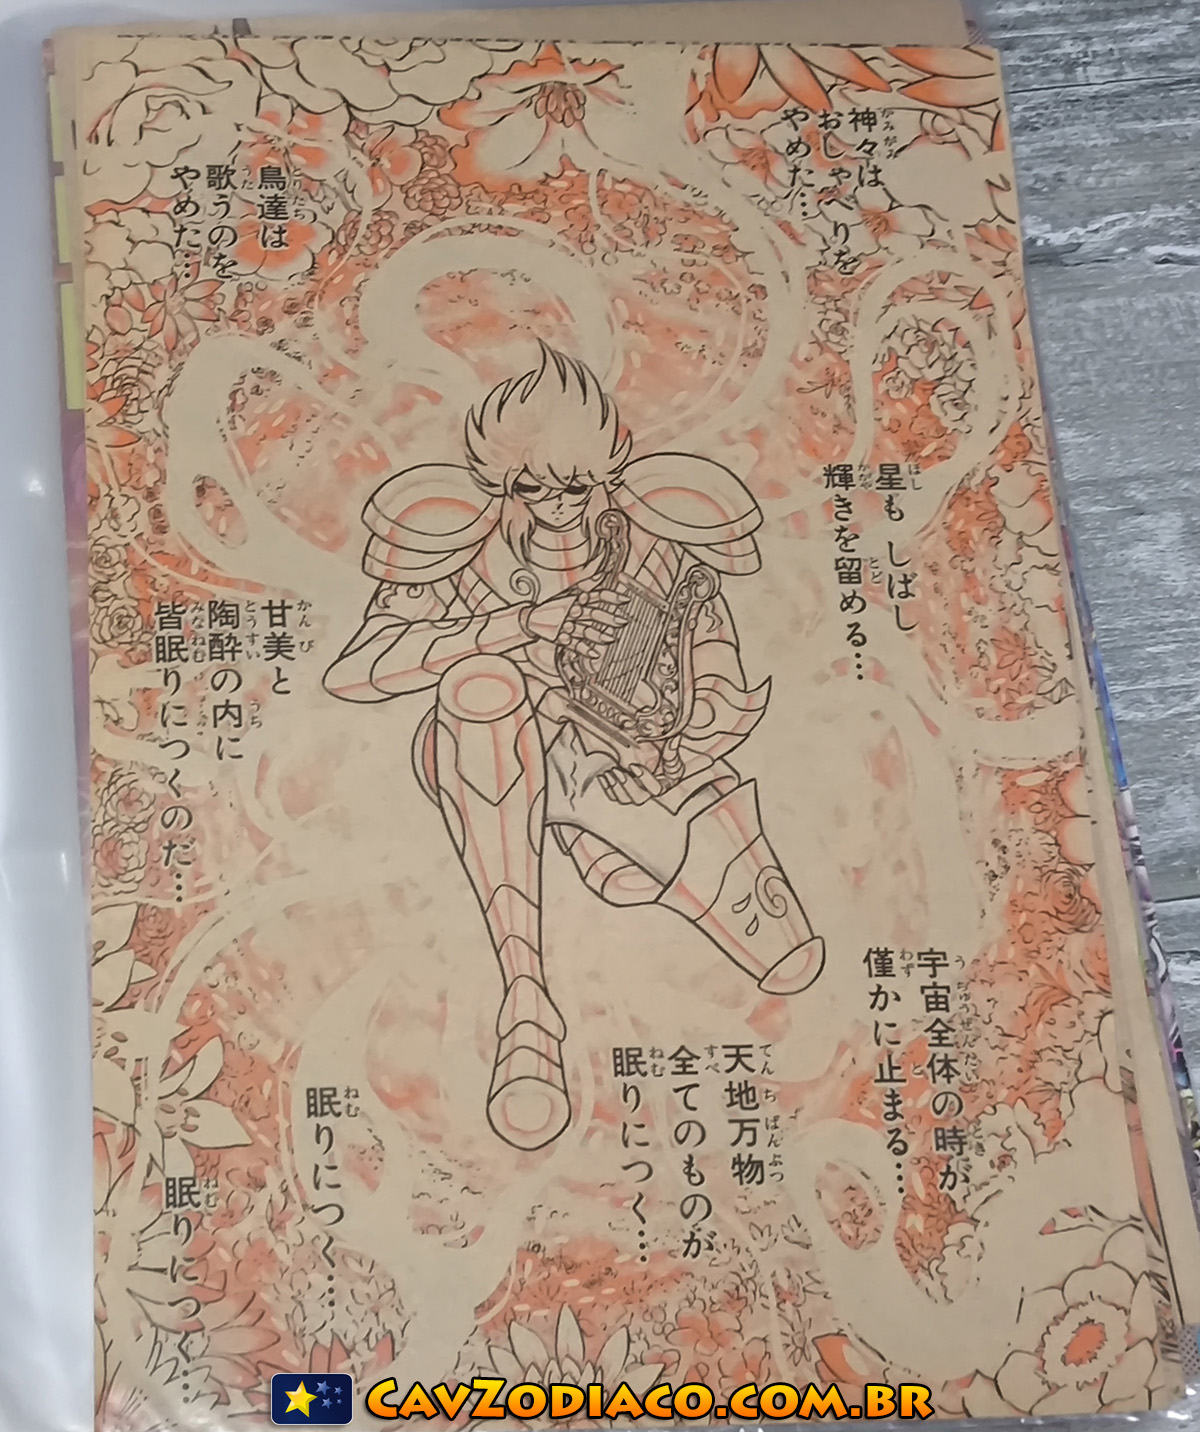 神々は
おしゃべりを
やめた…
鳥達は
歌うのを
やめた…
星も しばし
輝きを留める…
甘美と
陶酔の内に
皆眠りにつくのだ…
宇宙全体の時が
僅かに止まる…
天地万物
全てのものが
眠りにつく…
眠りにつく……
眠りにつく……
CavZodiaco.com.br